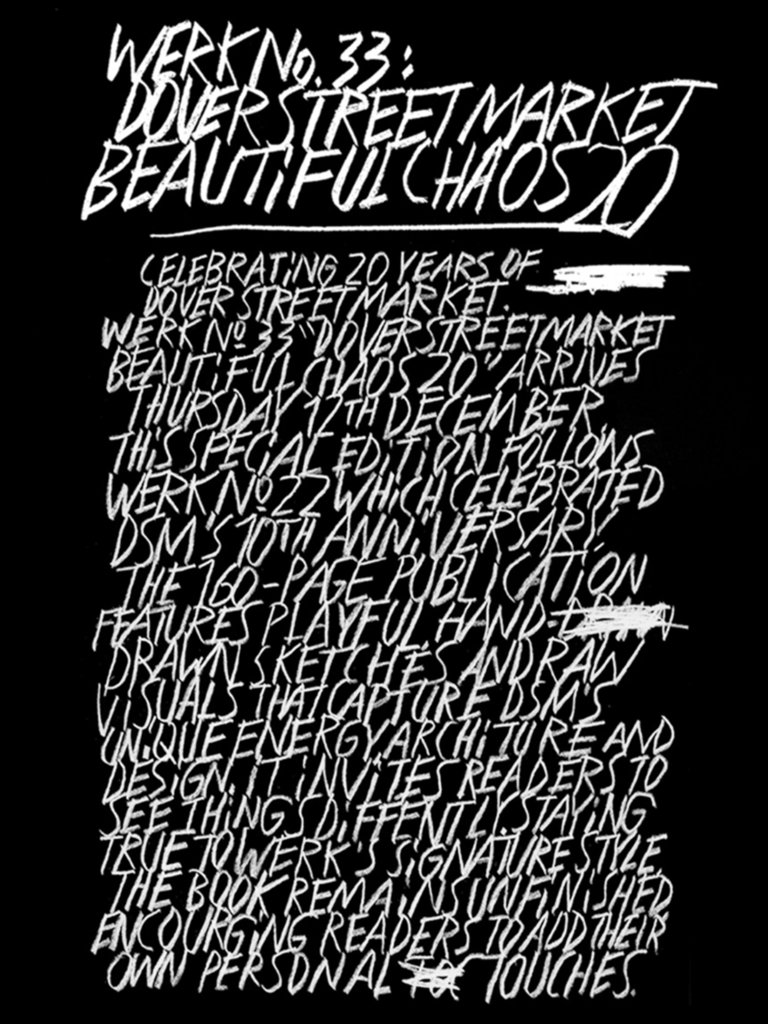 WERK No. 33:
DOVER STREET MARKET
BEAUTIFUL CHAOS 20
CELEBRATING 20 YEARS OF
DOVER STREET MARKET.
WERK Nº 33 "DOVER STREET MARKET
BEAUTIFUL CHAOS 20" ARRIVES
THURSDAY 12TH DECEMBER.
THIS SPECIAL EDITION FOLLOWS
WERK Nº 22 WHICH CELEBRATED
DSM'S 10TH ANNIVERSARY.
THE 160-PAGE PUBLICATION
FEATURES PLAYFUL HAND-
DRAWN SKETCHES AND RAW
VISUALS THAT CAPTURE DSM'S
UNIQUE ENERGY, ARCHITTURE AND
DESIGN. IT INVITES READERS TO
SEE THINGS DIFFENTLY. STAYING
TRUE TO WERK'S SIGNATURE STYLE
THE BOOK REMAINS UNFINISHED
ENCOURGING READERS TO ADD THEIR
OWN PERSONAL TOUCHES.